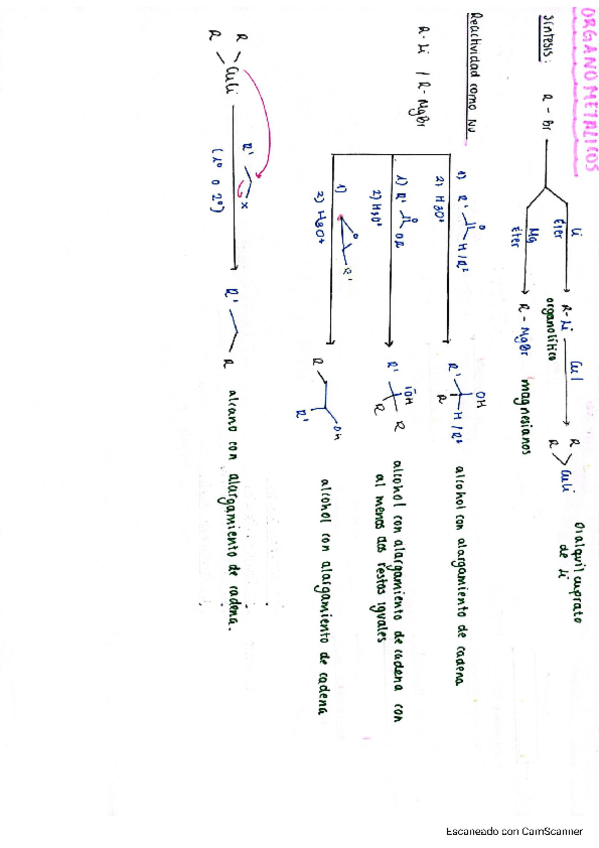 ORGANOMETALICOS
Síntesis:
R - Br
Li
Éter
Mg
Éter
R-Li
organolítico
CuI
R
R
CuLi
Dialquil cuprato
de Li
R - MgBr
magnesianos
Reactividad como Nu
R-Li / R-MgBr
1) R' O H/R²
2) H3O+
OH
R' H/R²
R
alcohol con alargamiento de cadena
1) R' O OR
2) H3O+
OH
R' R
R
alcohol con alargamiento de cadena con
al menos dos restos iguales
1) O R'
2) H3O+
R
R'
OH
alcohol con alargamiento de cadena
R
R
CuLi
R' X
(1º o 2º)
R' R
alcano con alargamiento de cadena.
Escaneado con CamScanner